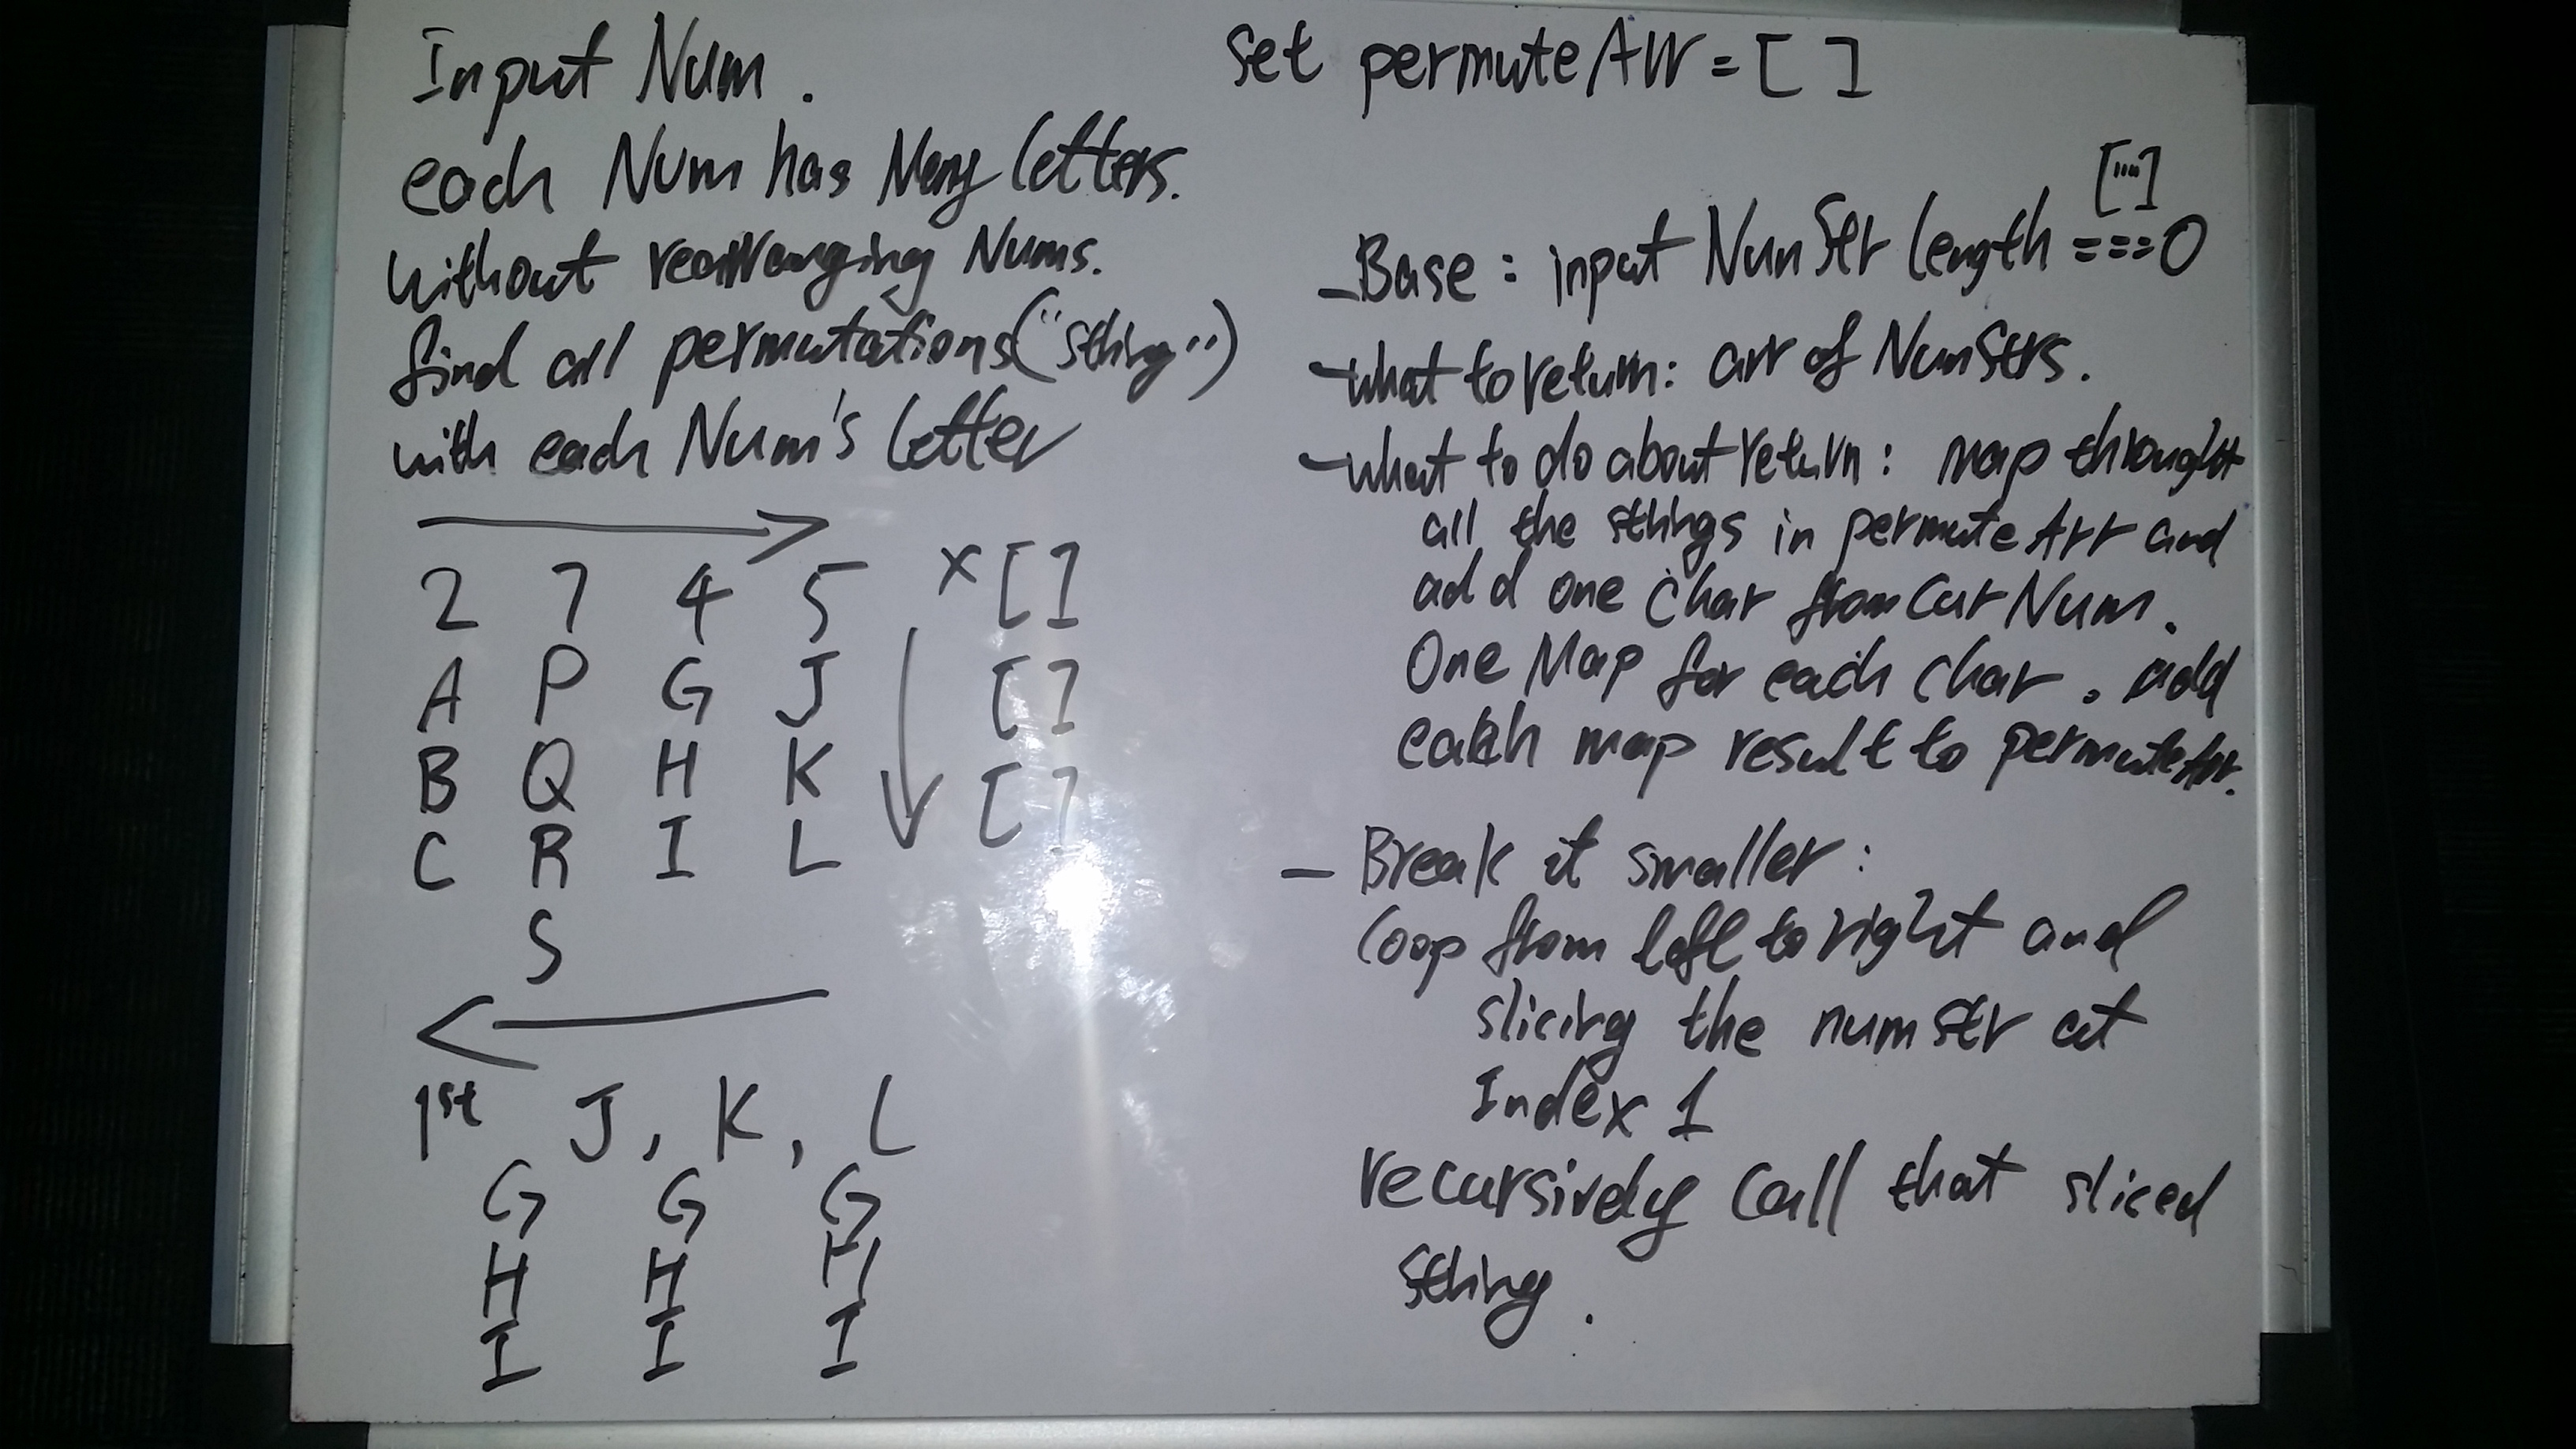 Input Num.
each Num has Many letters.
without rearranging Nums.
find all permutations("string")
with each Num's letter
2 7 4 5 x []
A P G J []
B Q H K []
C R I L
S
1st J, K, L
G G G
H H H
I I I
set permuteArr = [ ]
[""]
- Base: input NumStr length === 0
- what to return: arr of NumStrs.
- what to do about return: map throught
all the strings in permuteArr and
add one char from Cur Num.
One Map for each char. add
each map result to permuteArr.
- Break it smaller:
loop from left to right and
slicing the numstr at
Index 1
recursively call that sliced
string.